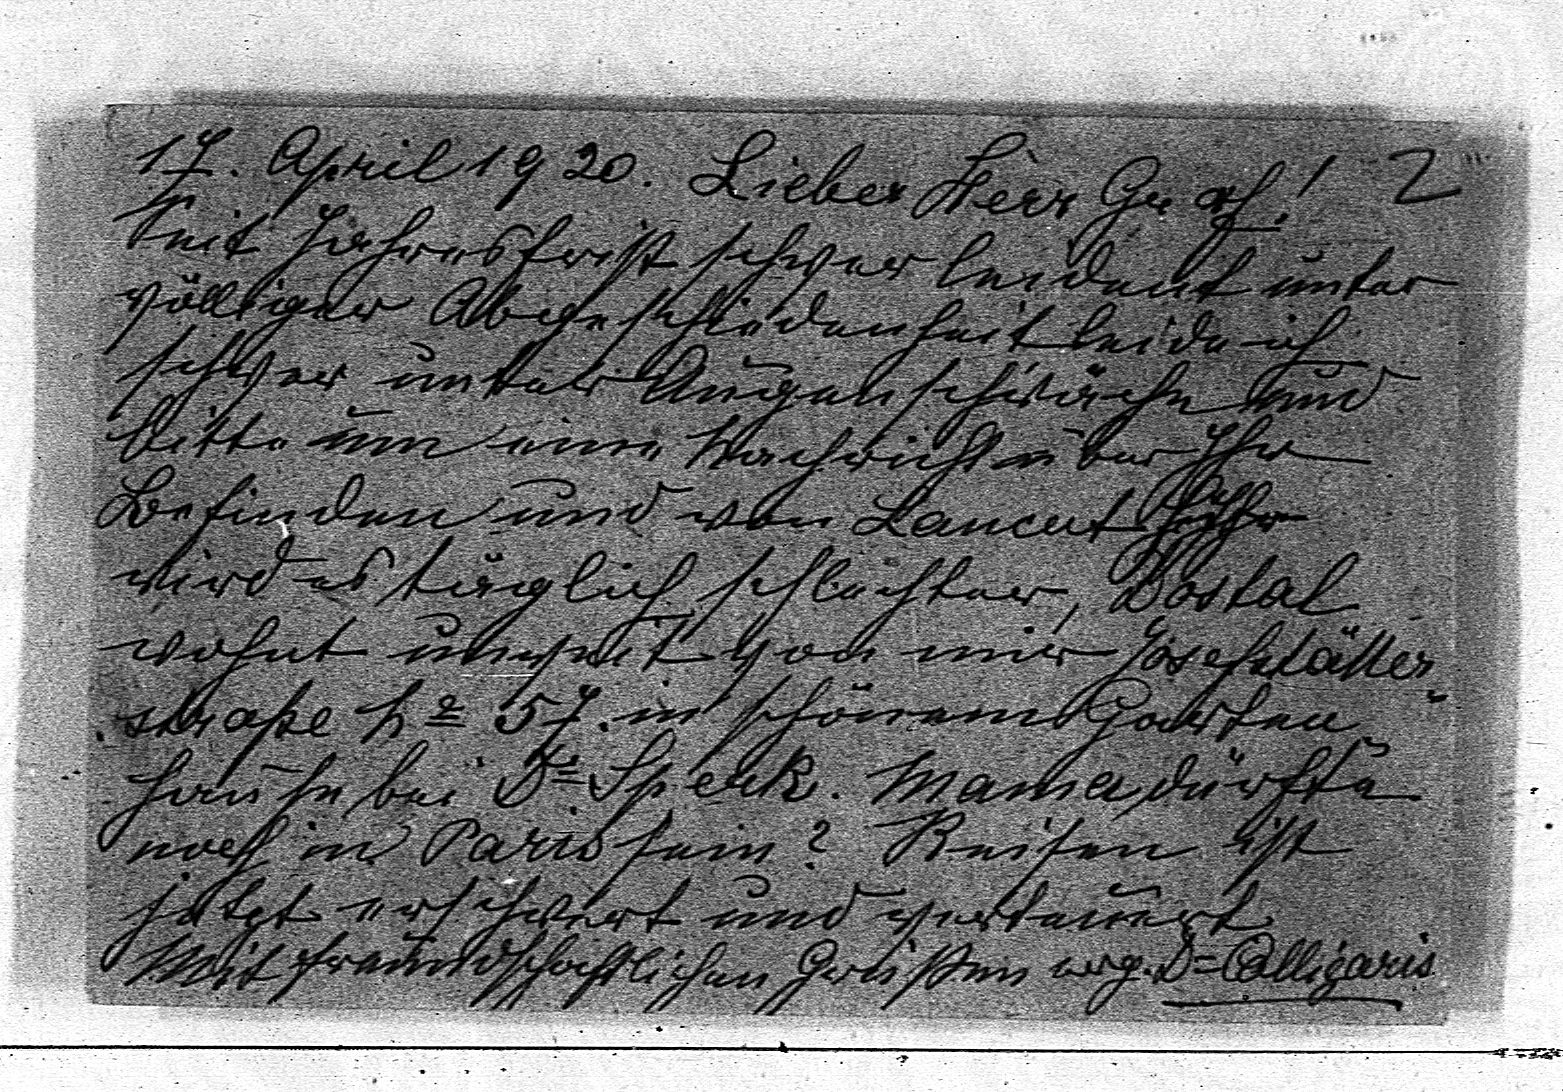 17. April 1920. Lieber Herr Graf! 2
Seit Jahresfrist schwer leidend unter
völliger Abgeschiedenheit leide ich
schwer unter Augenschwäche und
bitte um eine Nachricht über Ihr
Befinden und von Lancut
wird es täglich schlechter, Dostal
wohnt unweit von mir Josefstätter
straße No 57. in schönem Garten
hause bei Dr Speck. Mama dürfte
noch in Paris sein? Reisen ist
jetzt erschwert und verteuert.
Mit freundschaftlichen Grüßen erg. Dr Calligaris